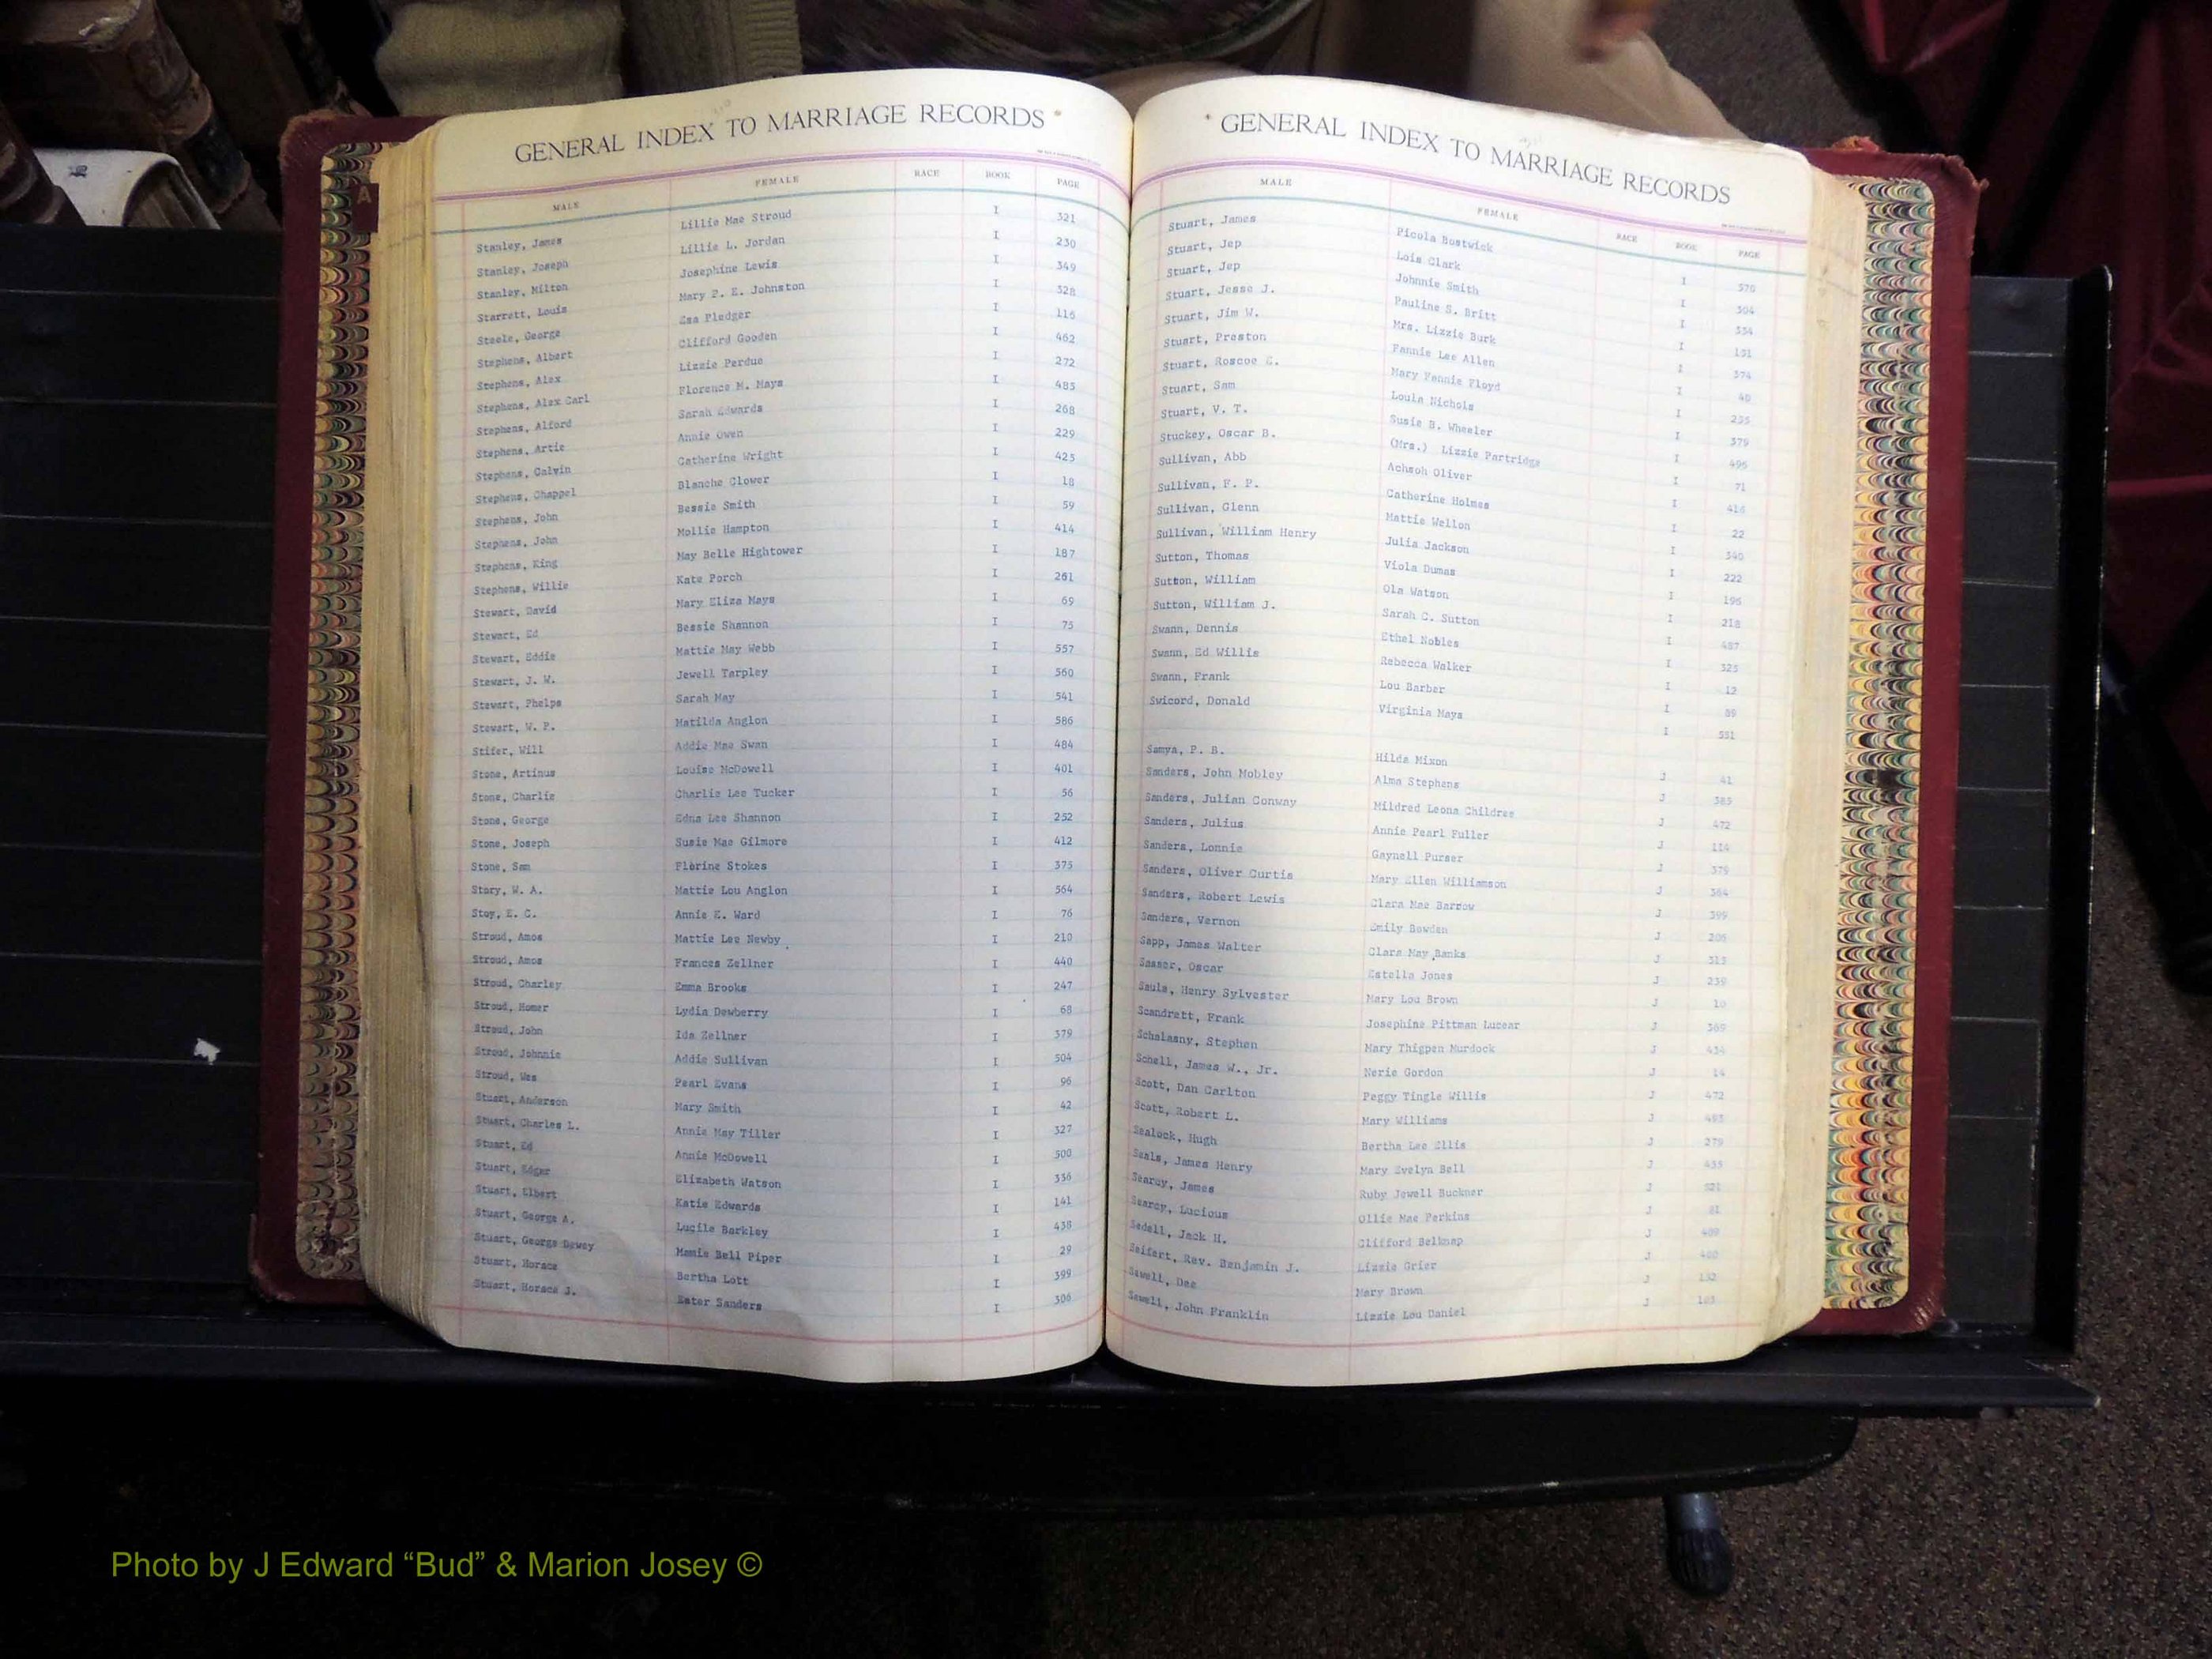 GENERAL INDEX TO MARRIAGE RECORDS
MALE FEMALE RACE BOOK PAGE
Stanley, James Lillie Mae Stroud I 321
Stanley, Joseph Lillie L. Jordan I 230
Stanley, Milton Josephine Lewis I 349
Starrett, Louis Mary P. E. Johnston I 328
Steele, George Esa Pledger I 115
Stephens, Albert Clifford Gooden I 462
Stephens, Alex Lizzie Perdue I 272
Stephens, Alex Carl Florence M. Mays I 485
Stephens, Alford Sarah Edwards I 268
Stephens, Artie Annie Owen I 229
Stephens, Calvin Catherine Wright I 425
Stephens, Chappel Blanche Clower I 18
Stephens, John Bessie Smith I 59
Stephens, John Mollie Hampton I 414
Stephens, King May Belle Hightower I 187
Stephens, Willie Kate Porch I 261
Stewart, David Mary Eliza Mays I 69
Stewart, Ed Bessie Shannon I 75
Stewart, Eddie Mattie May Webb I 557
Stewart, J. W. Jewell Tarpley I 560
Stewart, Phelps Sarah May I 541
Stewart, W. P. Matilda Anglon I 586
Stifer, Will Addie Mae Swan I 484
Stone, Artinus Louise McDowell I 401
Stone, Charlie Charlie Lee Tucker I 56
Stone, George Edna Lee Shannon I 252
Stone, Joseph Susie Mae Gilmore I 412
Stone, Sam Florine Stokes I 375
Story, W. A. Mattie Lou Anglon I 564
Stoy, E. C. Annie E. Ward I 76
Stroud, Amos Mattie Lee Newby I 210
Stroud, Amos Frances Zellner I 440
Stroud, Charley Emma Brooks I 247
Stroud, Homer Lydia Dewberry I 68
Stroud, John Ida Zellner I 379
Stroud, Johnnie Addie Sullivan I 504
Stroud, Wes Pearl Evans I 96
Stuart, Anderson Mary Smith I 42
Stuart, Charles L. Annie May Tiller I 327
Stuart, Ed Annie McDowell I 500
Stuart, Edgar Elizabeth Watson I 336
Stuart, Elbert Katie Edwards I 141
Stuart, George A. Lucile Barkley I 438
Stuart, George Dewey Mamie Bell Piper I 29
Stuart, Horace Bertha Lott I 399
Stuart, Horace J. Ester Sanders I 306
GENERAL INDEX TO MARRIAGE RECORDS
MALE FEMALE RACE BOOK PAGE
Stuart, James Picola Bostwick I 570
Stuart, Jep Lois Clark I 304
Stuart, Jep Johnnie Smith I 334
Stuart, Jesse J. Pauline S. Britt I 151
Stuart, Jim W. Mrs. Lizzie Burk I 574
Stuart, Preston Fannie Lee Allen I 40
Stuart, Roscoe C. Mary Fannie Floyd I 235
Stuart, Sam Loula Nichols I 579
Stuart, V. T. Susie B. Wheeler I 495
Stuckey, Oscar B. (Mrs.) Lizzie Partridge I 71
Sullivan, Abb Achsoh Oliver I 416
Sullivan, F. P. Catherine Holmes I 22
Sullivan, Glenn Mattie Wellon I 340
Sullivan, William Henry Julia Jackson I 222
Sutton, Thomas Viola Dumas I 195
Sutton, William Ola Watson I 218
Sutton, William J. Sarah C. Sutton I 487
Swann, Dennis Ethel Nobles I 325
Swann, Ed Willis Rebecca Walker I 12
Swann, Frank Lou Barber I 89
Swicord, Donald Virginia Mays I 551
Samya, P. B. Hilda Mixon J 41
Sanders, John Mobley Alma Stephens J 385
Sanders, Julian Conway Mildred Leona Childree J 472
Sanders, Julius Annie Pearl Fuller J 114
Sanders, Lonnie Gaynell Purser J 379
Sanders, Oliver Curtis Mary Ellen Williamson J 384
Sanders, Robert Lewis Clara Mae Barrow J 399
Sanders, Vernon Emily Bowden J 205
Sapp, James Walter Clara May Banks J 315
Sasser, Oscar Estella Jones J 239
Sauls, Henry Sylvester Mary Lou Brown J 10
Scandrett, Frank Josephine Pittman Lucear J 369
Schalasny, Stephen Mary Thigpen Murdock J 434
Schell, James W., Jr. Nerie Gordon J 14
Scott, Dan Carlton Peggy Tingle Willis J 472
Scott, Robert L. Mary Williams J 495
Sealock, Hugh Bertha Lee Ellis J 279
Seals, James Henry Mary Evelyn Bell J 435
Searcy, James Ruby Jewell Buckner J 521
Searcy, Lucious Ollie Mae Perkins J 81
Sedell, Jack H. Clifford Belknap J 409
Seifert, Rev. Benjamin J. Lizzie Grier J
Sewell, Dee Mary Brown J 132
Sewell, John Franklin Lizzie Lou Daniel J 103
A
Photo by J Edward “Bud” & Marion Josey ©